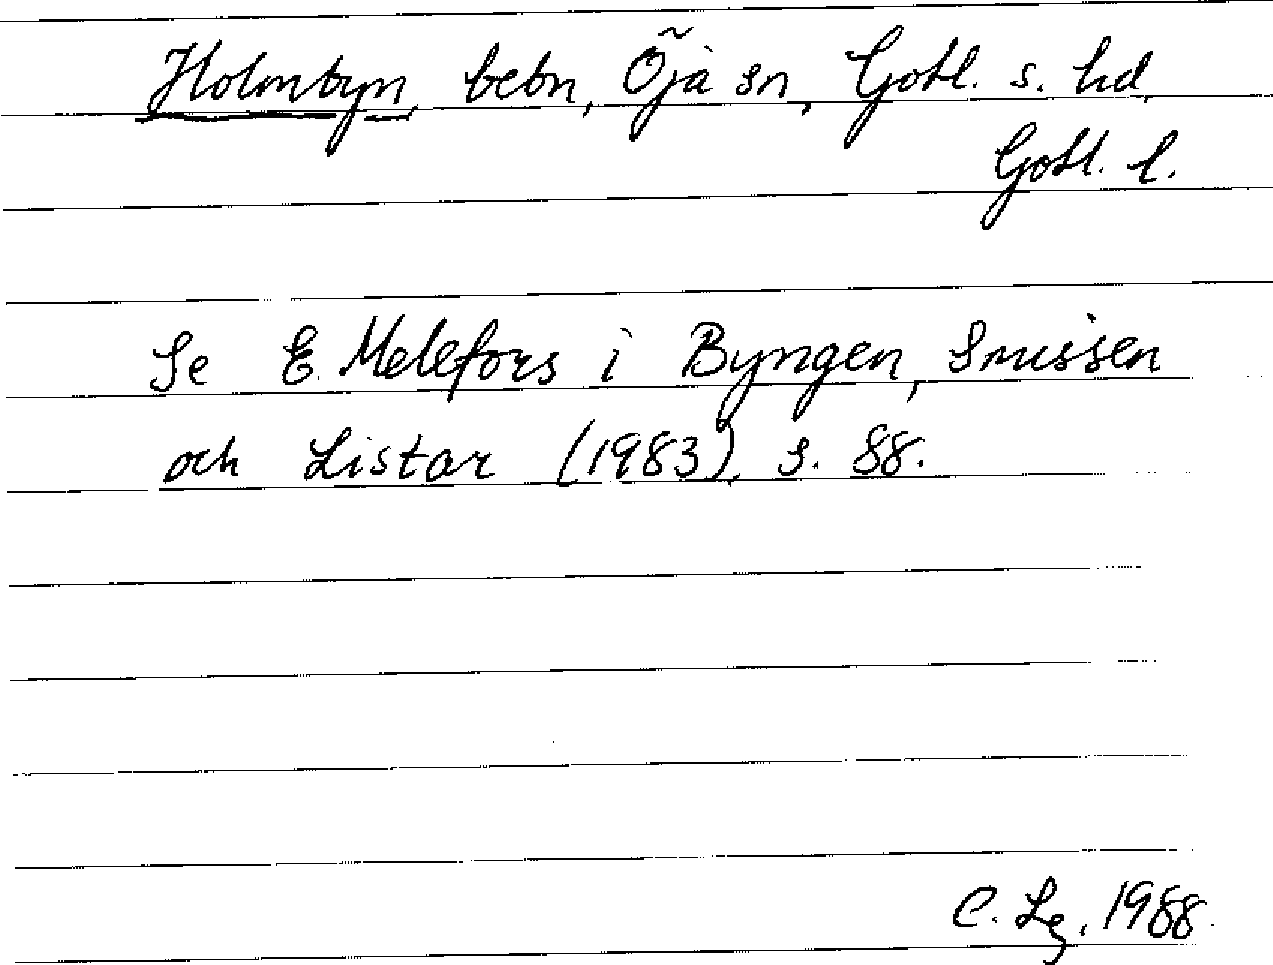 Holmbyn, bebn, Öja sn, Gotl. s. hd,
Gotl. l.
Se E. Melefors i Byngen, Snissen
och Listar (1983), s. 88.
C. Lg, 1988.